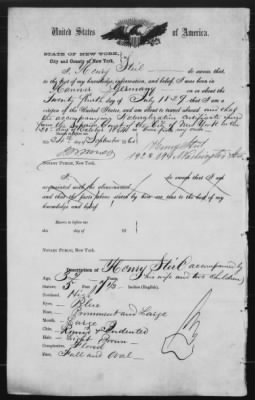 United States of America.
STATE OF NEW YORK,
City and County of New York.
I, Henry Steil do swear that
to the best of my knowledge, information, and belief, I was born in
Hanover Germany on the
Twenty fourth day of July 1829 that I am a
citizen of the United States, and am about to travel abroad and that
the accompanying Naturalization Certificate issued
from the Superior Court of the City of New York
day of October
day of September
Henry Steil
Washington
NOTARY PUBLIC, New York.
I, do swear that I am
acquainted with the abovenamed
and that the facts above stated by are true, to the best of my
knowledge and belief
Sworn to before me
this day of
NOTARY PUBLIC, New York.
Description of Henry Steil accompanied by
his wife and two children
Age,
Stature, 5 Feet Inches (English).
Forehead, High
Eyes, Blue
Nose, Prominent and Large
Mouth, Large
Chin, Round & Indented
Hair, Light Brown
Complexion, Florid
Face, Full and Oval